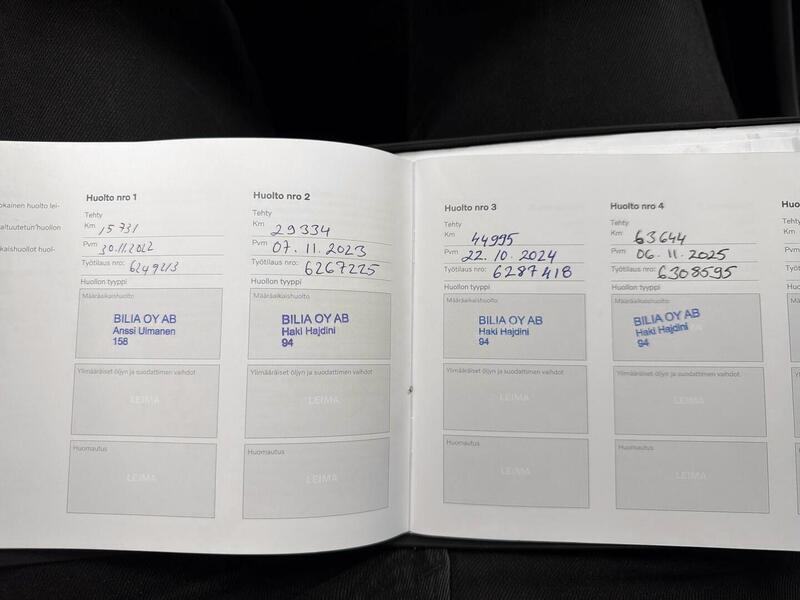 okainen huolto lei-
altuutetun huollon
kaishuollot huol-
Huolto nro 1
Tehty
Km 15 731
Pvm 30.11.2022
Työtilaus nro: 6249213
Huollon tyyppi
Määräaikaishuolto
BILIA OY AB
Anssi Ulmanen
158
Ylimääräiset öljyn ja suodattimen vaihdot
LEIMA
Huomautus
LEIMA
Huolto nro 2
Tehty
Km 29334
Pvm 07.11.2023
Työtilaus nro: 6267225
Huollon tyyppi
Määräaikaishuolto
BILIA OY AB
Haki Hajdini
94
Ylimääräiset öljyn ja suodattimen vaihdot
LEIMA
Huomautus
LEIMA
Huolto nro 3
Tehty
Km 44995
Pvm 22.10.2024
Työtilaus nro: 6287418
Huollon tyyppi
Määräaikaishuolto
BILIA OY AB
Haki Hajdini
94
Ylimääräiset öljyn ja suodattimen vaihdot
LEIMA
Huomautus
LEIMA
Huolto nro 4
Tehty
Km 63644
Pvm 06.11.2025
Työtilaus nro: 6308595
Huollon tyyppi
Määräaikaishuolto
BILIA OY AB
Haki Hajdini
94
Ylimääräiset öljyn ja suodattimen vaihdot
LEIMA
Huomautus
LEIMA
Huo
Tehty
Km
Pvm
Työti
Huollo